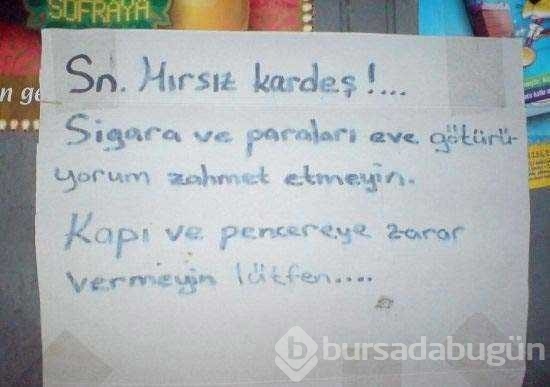 SOFRAYA
Sn. Hırsız kardeş!....
Sigara ve paraları eve götürü-
yorum zahmet etmeyin.
Kapı ve pencereye zarar
vermeyin lütfen....
b bursadabugün